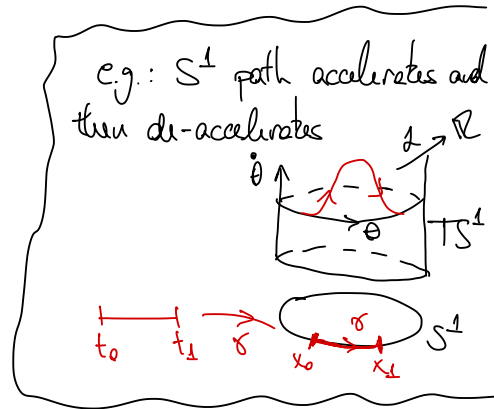 e.g.: S¹ path accelerates and
then de-accelerates
L ℝ
θ̇
θ TS¹
γ S¹
t₀ t₁ γ x₀ x₁